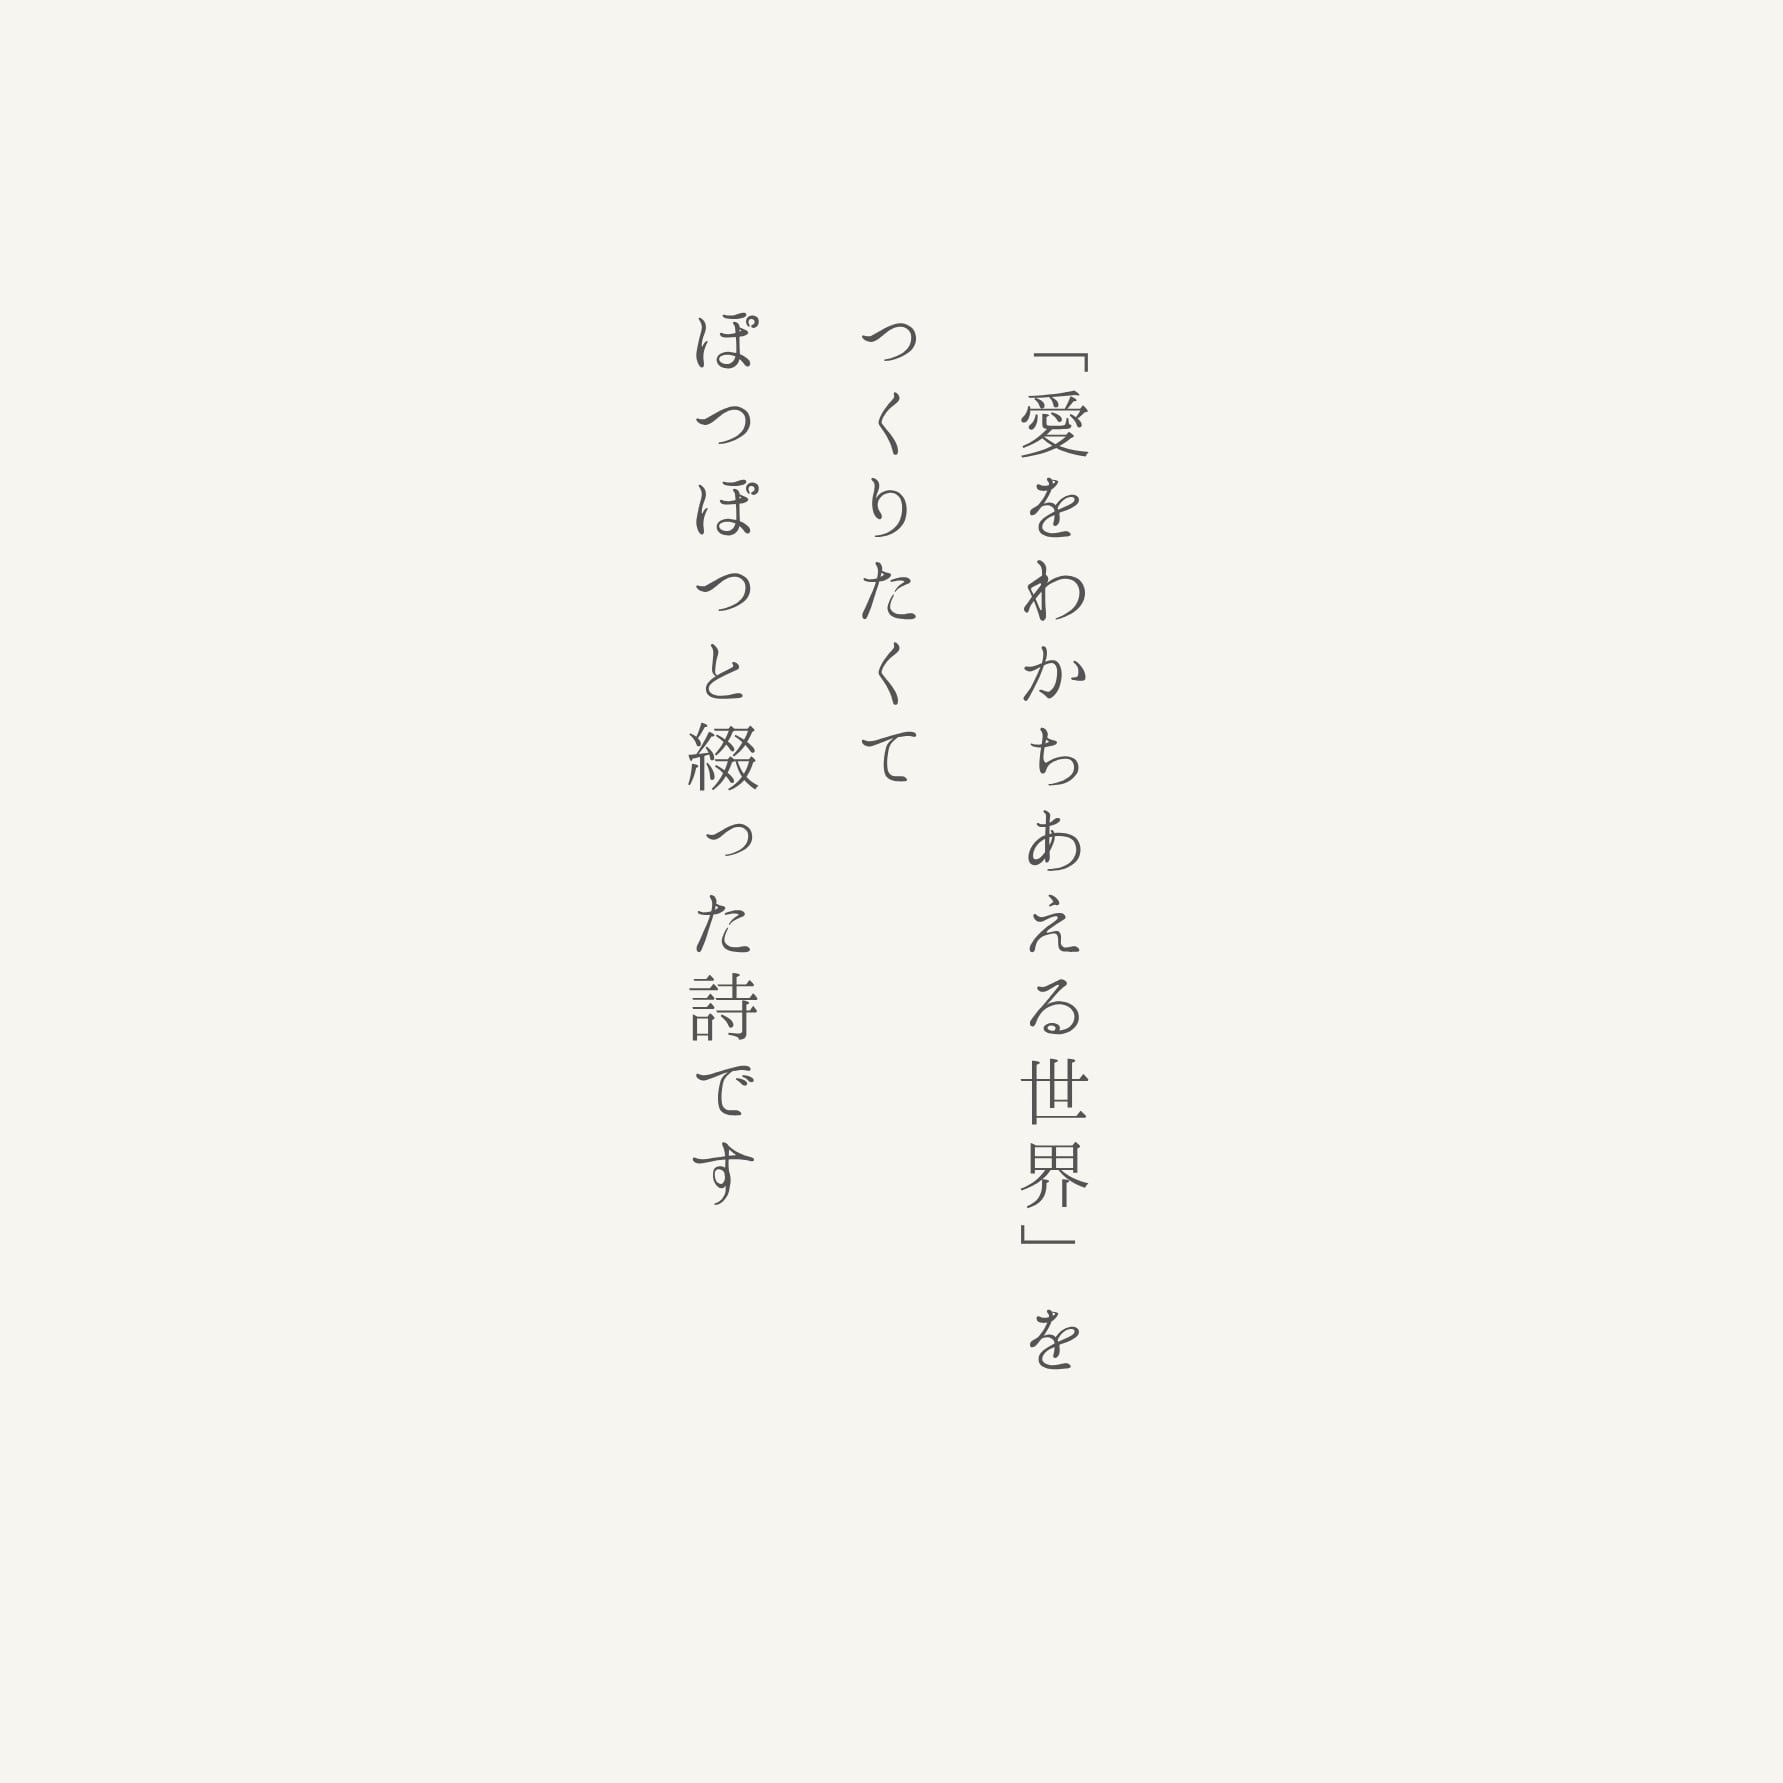 「愛をわかちあえる世界」を
つくりたくて
ぽつぽつと綴った詩です